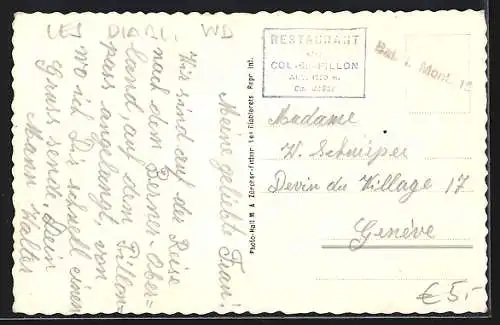 LES DIABL. WD
Meine geliebte Frau!
Wir sind auf der Reise
nach dem Berner-Ober=
land, auf dem Pillon=
pass angelangt, von
wo ich Dir schnell einen
Gruss send. Dein
Mann Walter
Photo-Hall M. A. Zürcher-Fatton Les Diablerets Repr. int.
RESTAURANT
du
COL-du-PILLON
Alt. 1550 m.
Bat. Mont. 10
Madame
W. Schnieper
Devin du Village 17
Genève
€ 5,-